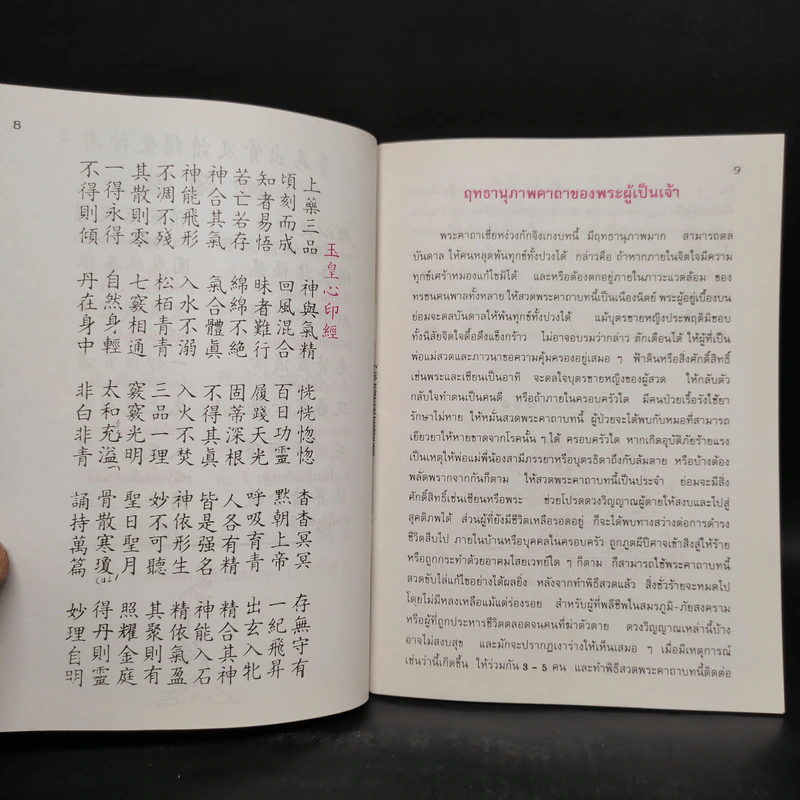 8
玉皇心印經
上藥三品 神與氣精 恍恍惚惚 杳杳冥冥 存無守有
頃刻而成 回風混合 百日功靈 默朝上帝 一紀飛昇
知者易悟 昧者難行 履踐天光 呼吸育青 出玄入牝
若亡若存 綿綿不絕 固蒂深根 人各有精 精合其神
神合其氣 氣合體眞 不得其眞 皆是强名 神能入石
神能飛形 入水不溺 入火不焚 神依形生 精依氣盈
不凋不殘 松栢青青 三品一理 妙不可聽 其聚則有
其散則零 七竅相通 竅竅光明 聖日聖月 照耀金庭
一得永得 自然身輕 太和充溢 骨散寒瓊 得丹則靈
不得則傾 丹在身中 非白非青 誦持萬篇 妙理自明
9
ฤทธานุภาพคาถาของพระผู้เป็นเจ้า
พระคาถาเซียหง่วงกักจิงเกงบทนี้ มีฤทธานุภาพมาก สามารถดล
บันดาล ให้คนหลุดพ้นทุกข์ทั้งปวงได้ กล่าวคือ ถ้าหากภายในจิตใจมีความ
ทุกข์เศร้าหมองแก้ไขมิได้ และหรือต้องตกอยู่ภายในภาวะแวดล้อม ของ
ทรชนคนพาลทั้งหลาย ให้สวดพระคาถาบทนี้เป็นเนืองนิตย์ พระผู้อยู่เบื้องบน
ย่อมจะดลบันดาลให้พ้นทุกข์ทั้งปวงได้ แม้บุตรชายหญิงประพฤติมิชอบ
ทั้งนิสัยจิตใจดื้อดึงแข็งกร้าว ไม่อาจอบรมว่ากล่าว ตักเตือนได้ ให้ผู้ที่เป็น
พ่อแม่สวดและภาวนาขอความคุ้มครองอยู่เสมอ ๆ ฟ้าดินหรือสิ่งศักดิ์สิทธิ์
เช่นพระและเซียนเป็นอาทิ จะดลใจบุตรชายหญิงของผู้สวด ให้กลับตัว
กลับใจทำตนเป็นคนดี หรือถ้าภายในครอบครัวใด มีคนป่วยเรื้อรังใช้ยา
รักษาไม่หาย ให้หมั่นสวดพระคาถาบทนี้ ผู้ป่วยจะได้พบกับหมอที่สามารถ
เยียวยาให้หายขาดจากโรคนั้น ๆ ได้ ครอบครัวใด หากเกิดอุบัติภัยร้ายแรง
เป็นเหตุให้พ่อแม่พี่น้องสามีภรรยาหรือบุตรธิดาถึงกับล้มตาย หรือบ้างต้อง
พลัดพรากจากกันก็ตาม ให้สวดพระคาถาบทนี้เป็นประจำ ย่อมจะมีสิ่ง
ศักดิ์สิทธิ์เช่นเซียนหรือพระ ช่วยโปรดดวงวิญญาณผู้ตายให้สงบและไปสู่
สุคติภพได้ ส่วนผู้ที่ยังมีชีวิตเหลือรอดอยู่ ก็จะได้พบทางสว่างต่อการดำรง
ชีวิตสืบไป ภายในบ้านหรือบุคคลในครอบครัว ถูกภูตผีปีศาจเข้าสิงสู่ให้ร้าย
หรือถูกกระทำด้วยอาคมไสยเวทย์ใด ๆ ก็ตาม ก็สามารถใช้พระคาถาบทนี้
สวดขับไล่แก้ไขอย่างได้ผลยิ่ง หลังจากทำพิธีสวดแล้ว สิ่งชั่วร้ายจะหมดไป
โดยไม่มีหลงเหลือแม้แต่ร่องรอย สำหรับผู้ที่พลีชีพในสมรภูมิ-ภัยสงคราม
หรือผู้ที่ถูกประหารชีวิตตลอดจนคนที่ฆ่าตัวตาย ดวงวิญญาณเหล่านี้บ้าง
อาจไม่สงบสุข และมักจะปรากฏเงาร่างให้เห็นเสมอ ๆ เมื่อมีเหตุการณ์
เช่นว่านี้เกิดขึ้น ให้ร่วมกัน 3 - 5 คน และทำพิธีสวดพระคาถาบทนี้ติดต่อ